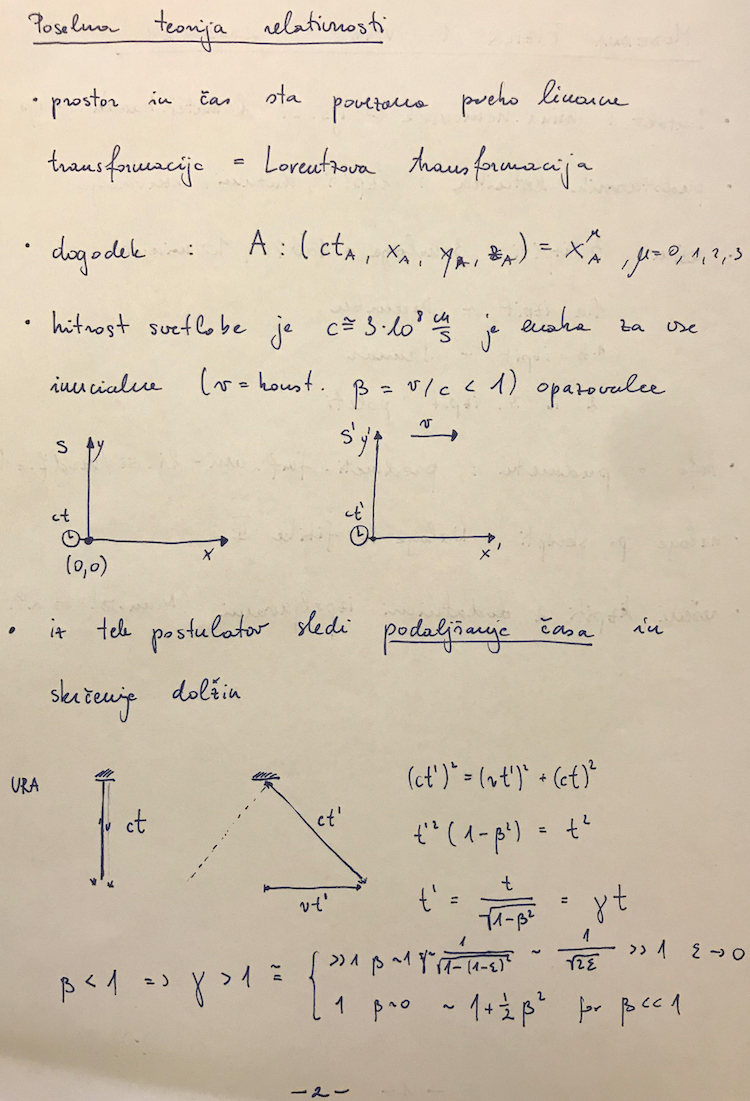 Posebna teorija relativnosti
• prostor in čas sta povezana preko linearne
transformacije = Lorentzova transformacija
• dogodek : A : (ct_A, x_A, y_A, z_A) = x^μ_A , μ=0, 1, 2, 3
• hitrost svetlobe je c ≅ 3·10^8 m/s je enaka za vse
inercialne (v = konst. β = v/c < 1) opazovalce
S y
S' y' v
ct
ct'
x
x'
(0,0)
• iz teh postulatov sledi podaljšanje časa in
skrčenje dolžin
URA
ct
ct'
vt'
(ct')² = (vt')² + (ct)²
t'² (1-β²) = t²
t' = t/√(1-β²) = γt
β < 1 => γ > 1 ≅ { >>1 β~1 γ~ 1/√(1-(1-ε)²) ~ 1/√(2ε) >> 1 ε→0
1 β~0 ~ 1+½β² for β<<1
-2-